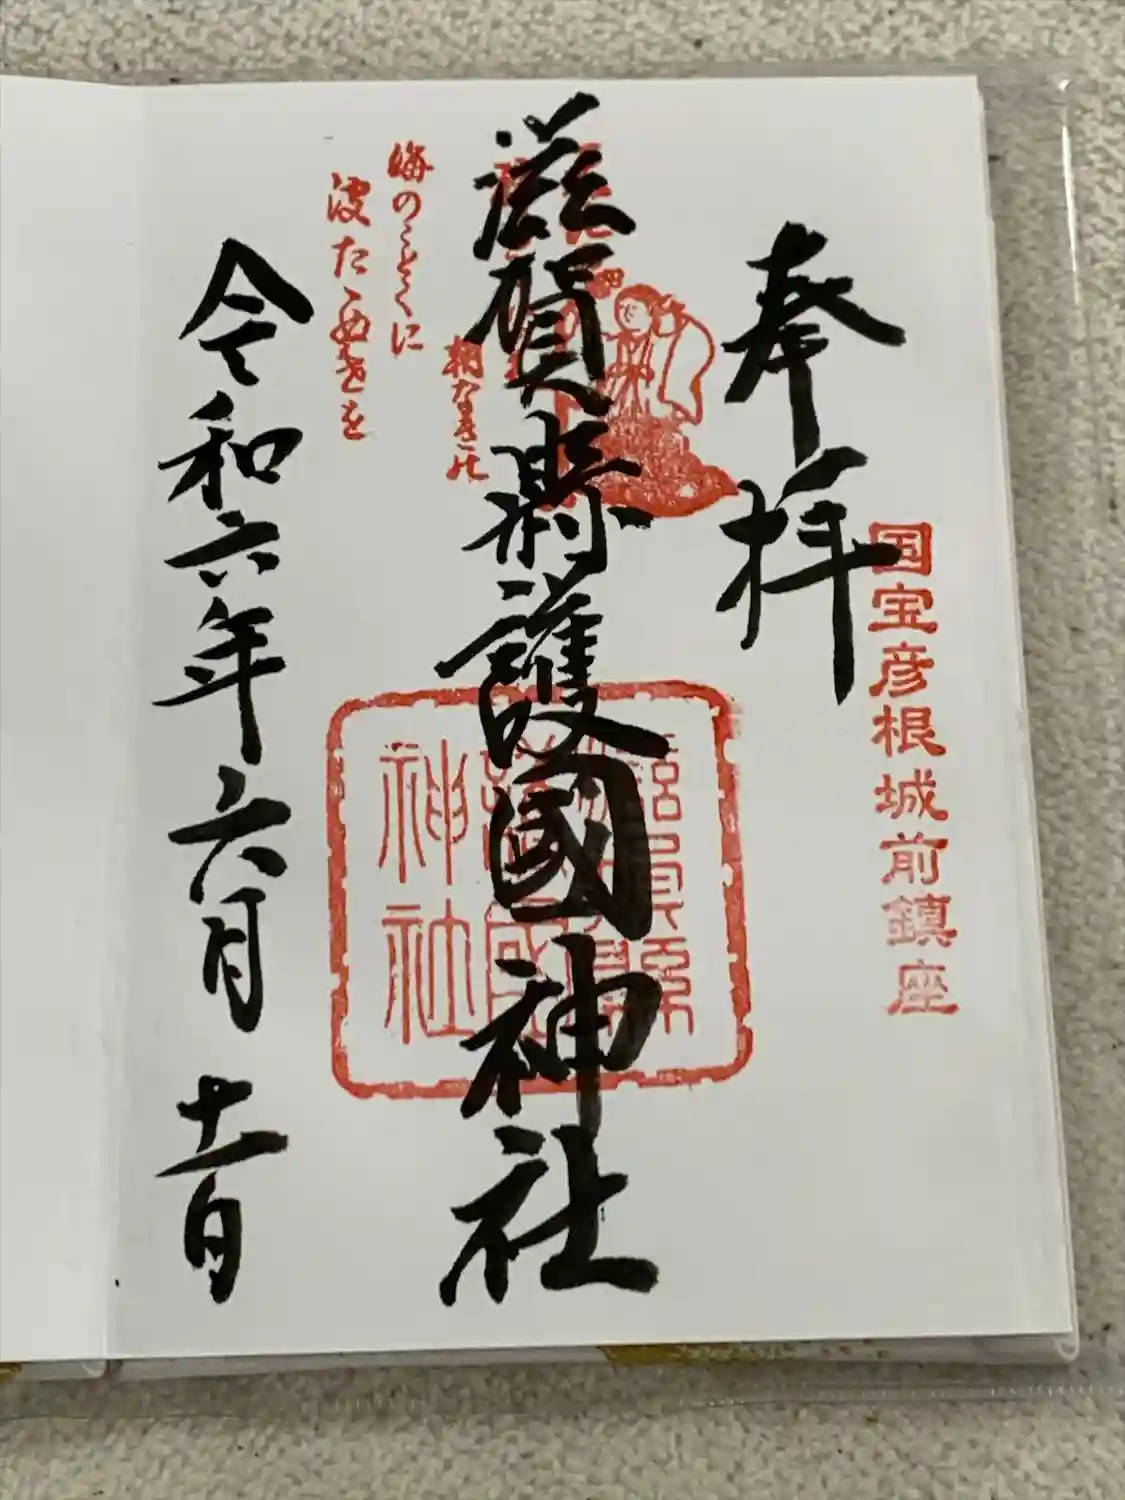 国宝彦根城前鎮座
奉拝
滋賀県護國神社
滋賀縣
護國
神社
朝なきの
海のことくに
波たゝぬ世を
令和六年六月十二日